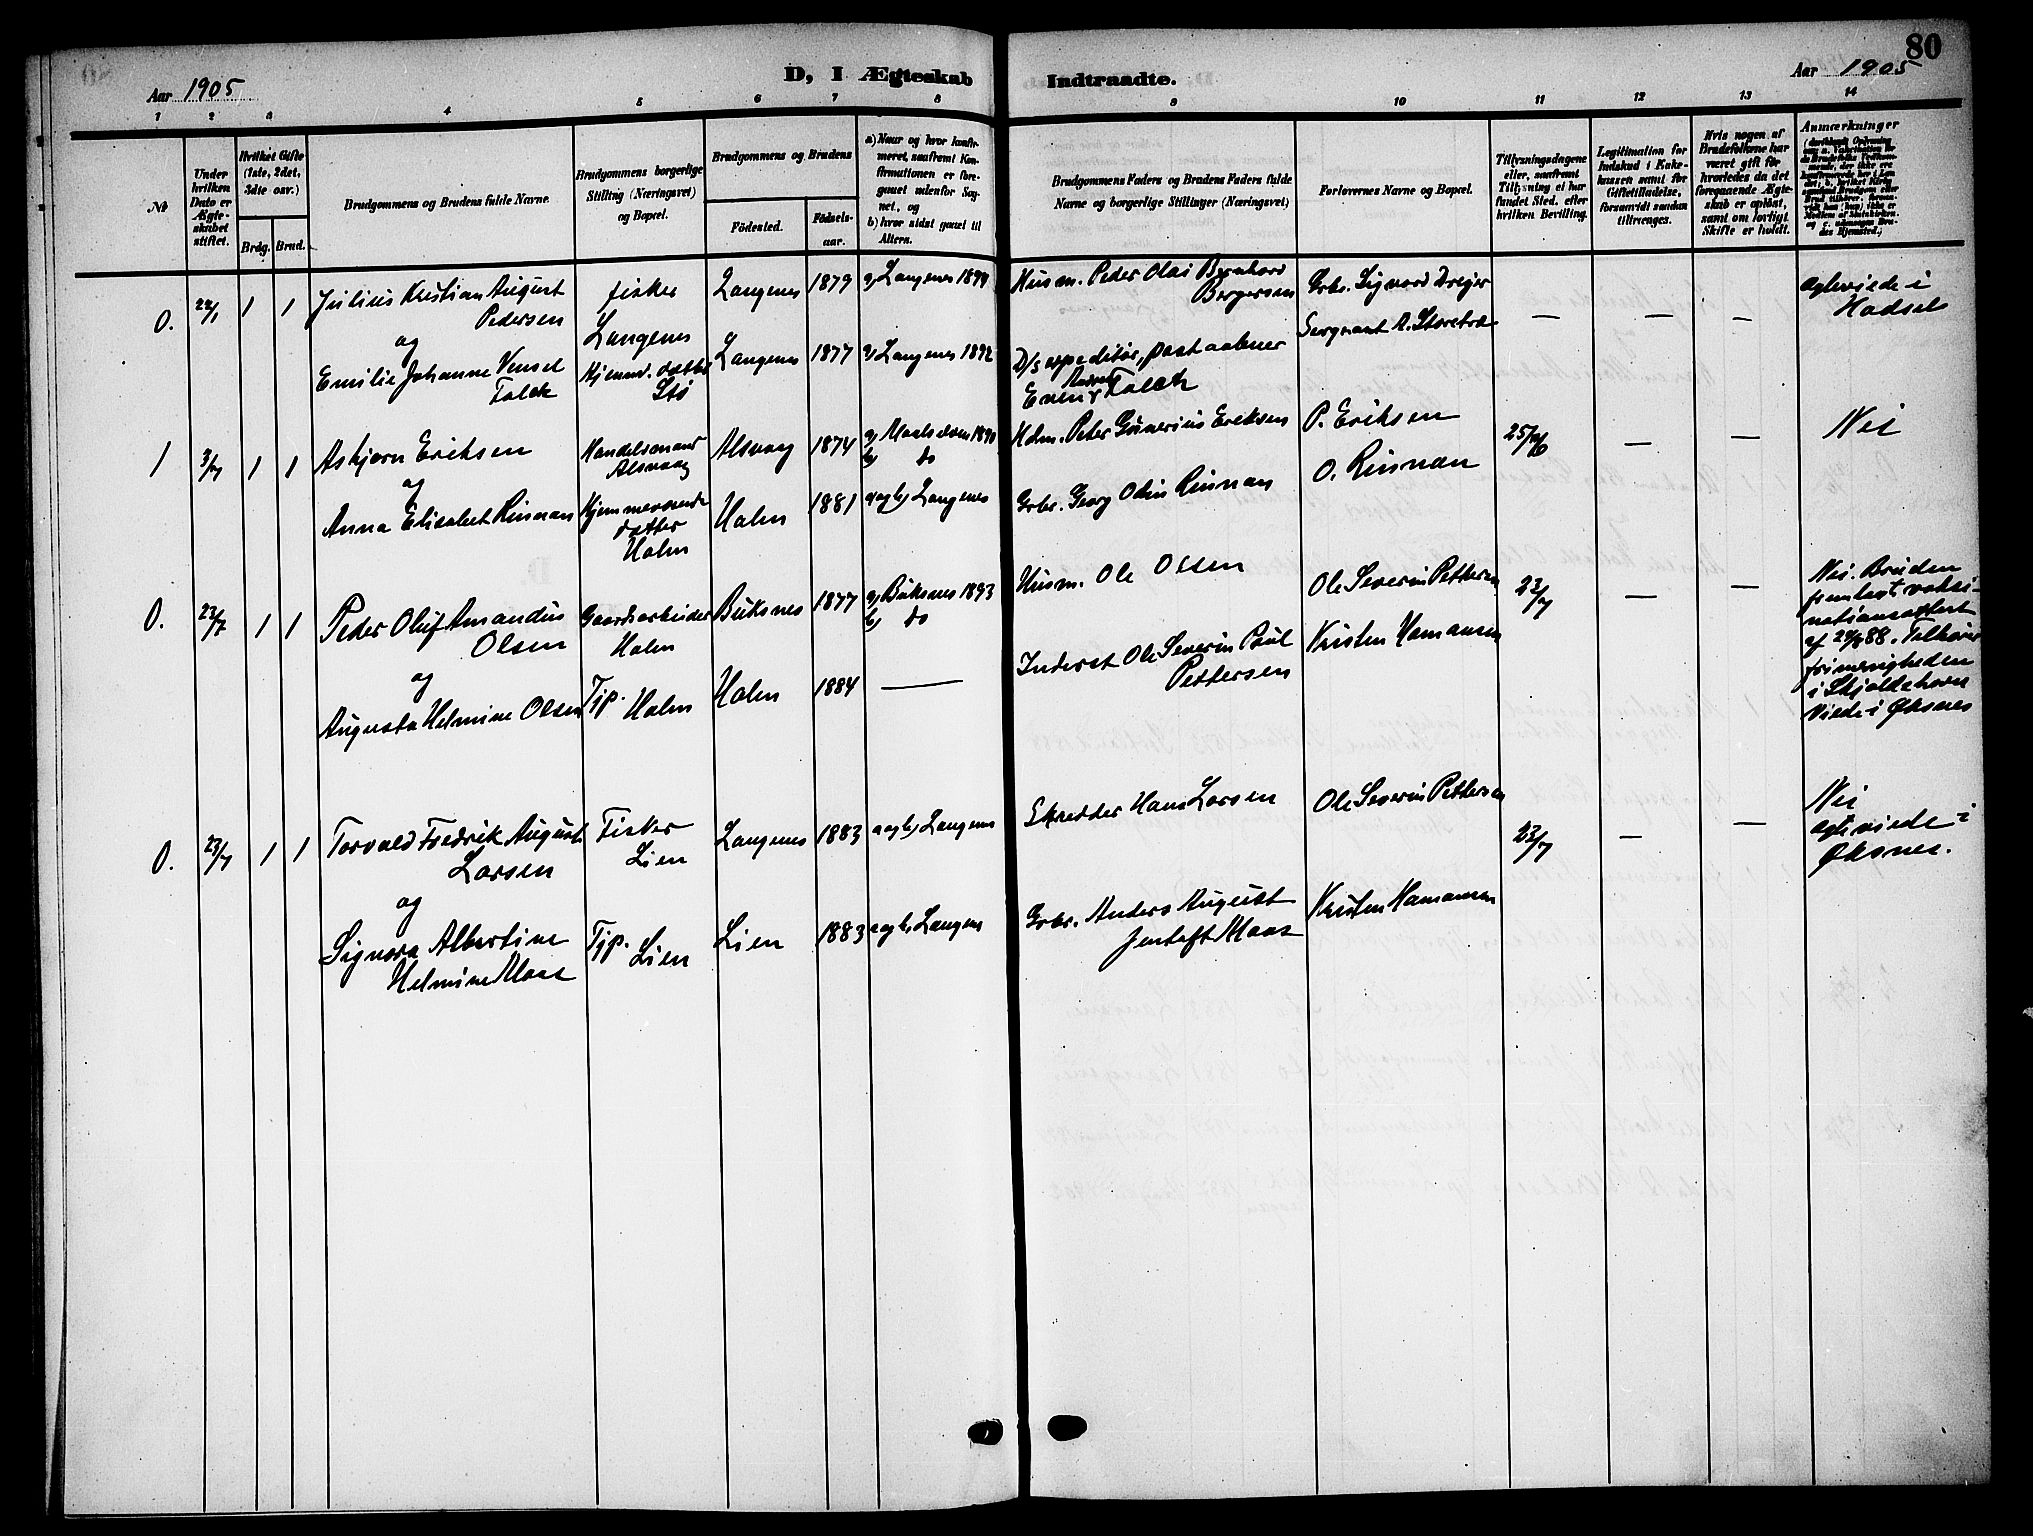 80
Aar 1905
D, I Ægteskab
Indtraadte.
Aar 1905
1 2 3 4 5 6 7 8 9 10 11 12 13 14
№
Under
hvilken
Dato er
Ægte-
skabet
stiftet.
Hvilket Gifte
(1ste, 2det,
3die osv.)
Brdg. Brud.
Brudgommens og Brudens fulde Navne.
Brudgommens borgerlige
Stilling (Næringsvei)
og Bopæl.
Brudgommens og Brudens
Fødested.
Fødsels-
aar.
a) Naar og hvor konfir-
meret, saafremt Kon-
firmationen er fore-
gaaet udenfor Sog-
net, og
b) hvor sidst gaaet til
Alters.
Brudgommens Faders og Brudens Faders fulde
Navne og borgerlige Stillinger (Næringsvei)
Forlovernes Navne og Bopæl.
Tillysningsdagene
eller, saafremt
Tillysning ei har
fundet Sted, efter
hvilken Bevilling.
Legitimation for
Indskud i Enke-
kassen samt for
Giftetilladelse,
forsaavidt saadan
tiltrænges.
Hvis nogen af
Brudefolkene har
været gift før
hvorledes da det
foregaaende Ægte-
skab er opløst,
samt om lovligt
Skifte er holdt.
Anmærkninger
0. 1 1
Julius Kristian August
Pedersen
og
Emilie Johanne Vensel
Falck
fisker
Langenes
Hjemmv. datter
Stø
Langenes 1879 a) Langenes 1894
Langenes 1877 a) Langenes 1892
Husm. Peder Olai Bernhard
Bergersen
D/s expeditør, postaabner
Even Falck
Grbr. Sigvard Dreyer
Sergeant A. Storebræ
— — —
Hadsel
1 3/7 1 1
Asbjørn Eriksen
og
Anna Elisabet Rinnan
Handelsmand
Alsvaag
Hjemmeværende
datter
Holm
Alsvaag 1874
b) do
Holm 1881 a og b) Langenes
Hdm. Peter Gunerius Eriksen
Grbr. Georg Odin Rinnan
P. Eriksen
O. Rinnan
— —
Nei
0. 23/7 1 1
Peder Oluf Amandus
Olsen
og
Augusta Helmine Olsen
Gaardsarbeider
Holm
Tjp. Holm
Buksnes 1877 a) Buksnes 1893
b) do
Holm 1884 —
Husm. Ole Olsen
Inderst Ole Severin Paul
Pettersen
Ole Severin Pettersen
Kristen Hamansen
23/7 — —
Nei. Bruden
fremlagt vaksi-
nationsattest
viede i Øksnes
0. 23/7 1 1
Torvald Fredrik August
Larsen
og
Signora Albertine
Helmine Maas
Fisker
Lien
Tjp. Lien
Langenes 1883 a og b) Langenes
Lien 1883 a og b) Langenes
Skredder Hans Larsen
Grbr. Anders August
Jentoft Maas
Ole Severin Pettersen
Kristen Hamansen
23/7 — —
Nei
Øksnes.